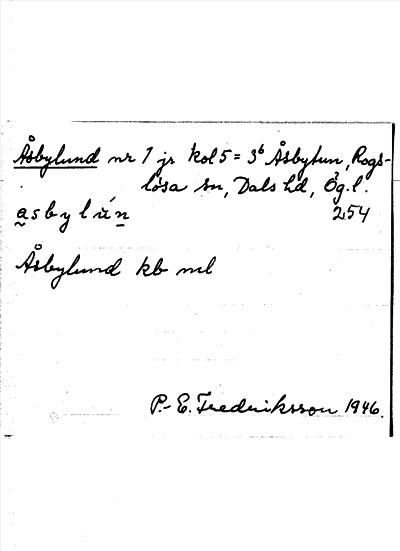 Åsbylund nr 1 jr kol 5 = 3⁶ Åsbytun, Rogs-
lösa sn, Dals hd, Ög. l.
asbylún 254
Åsbylund kb ml
P.-E. Fredriksson 1946.